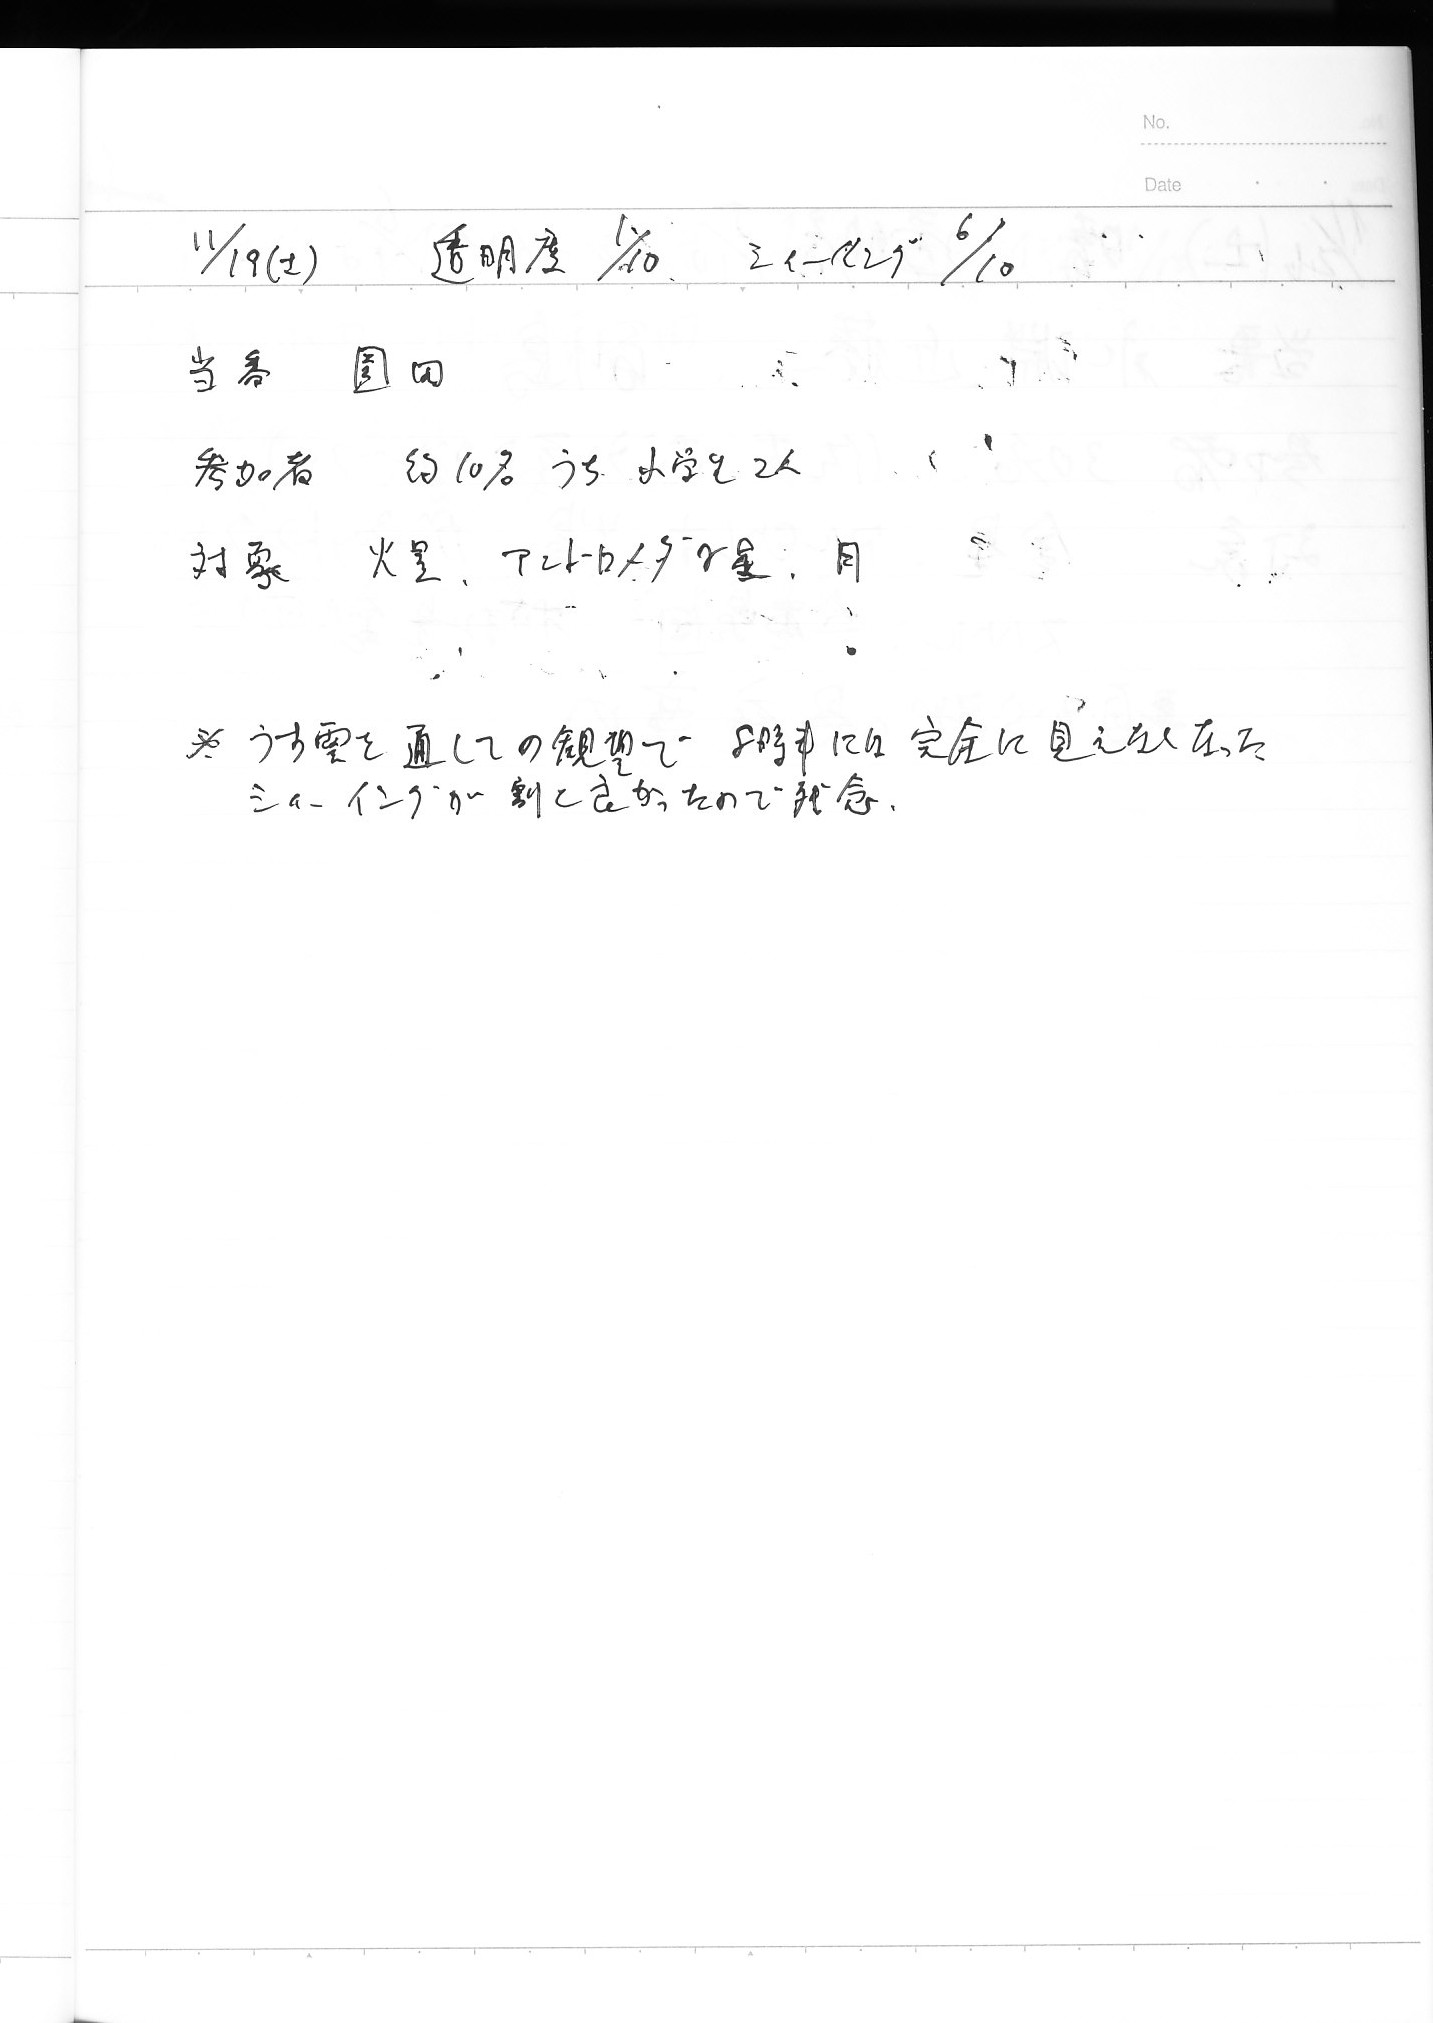 No.
Date
11/19(土) 透明度 1/10 シィーイング 6/10
当番 園田
参加者 約10名 うち 小学生 2人
対象 火星、アンドロメダγ星、月
※ うす雲を通しての観望で 8時半には 完全に見えなくなった
シィーイングが割と良かったので残念。